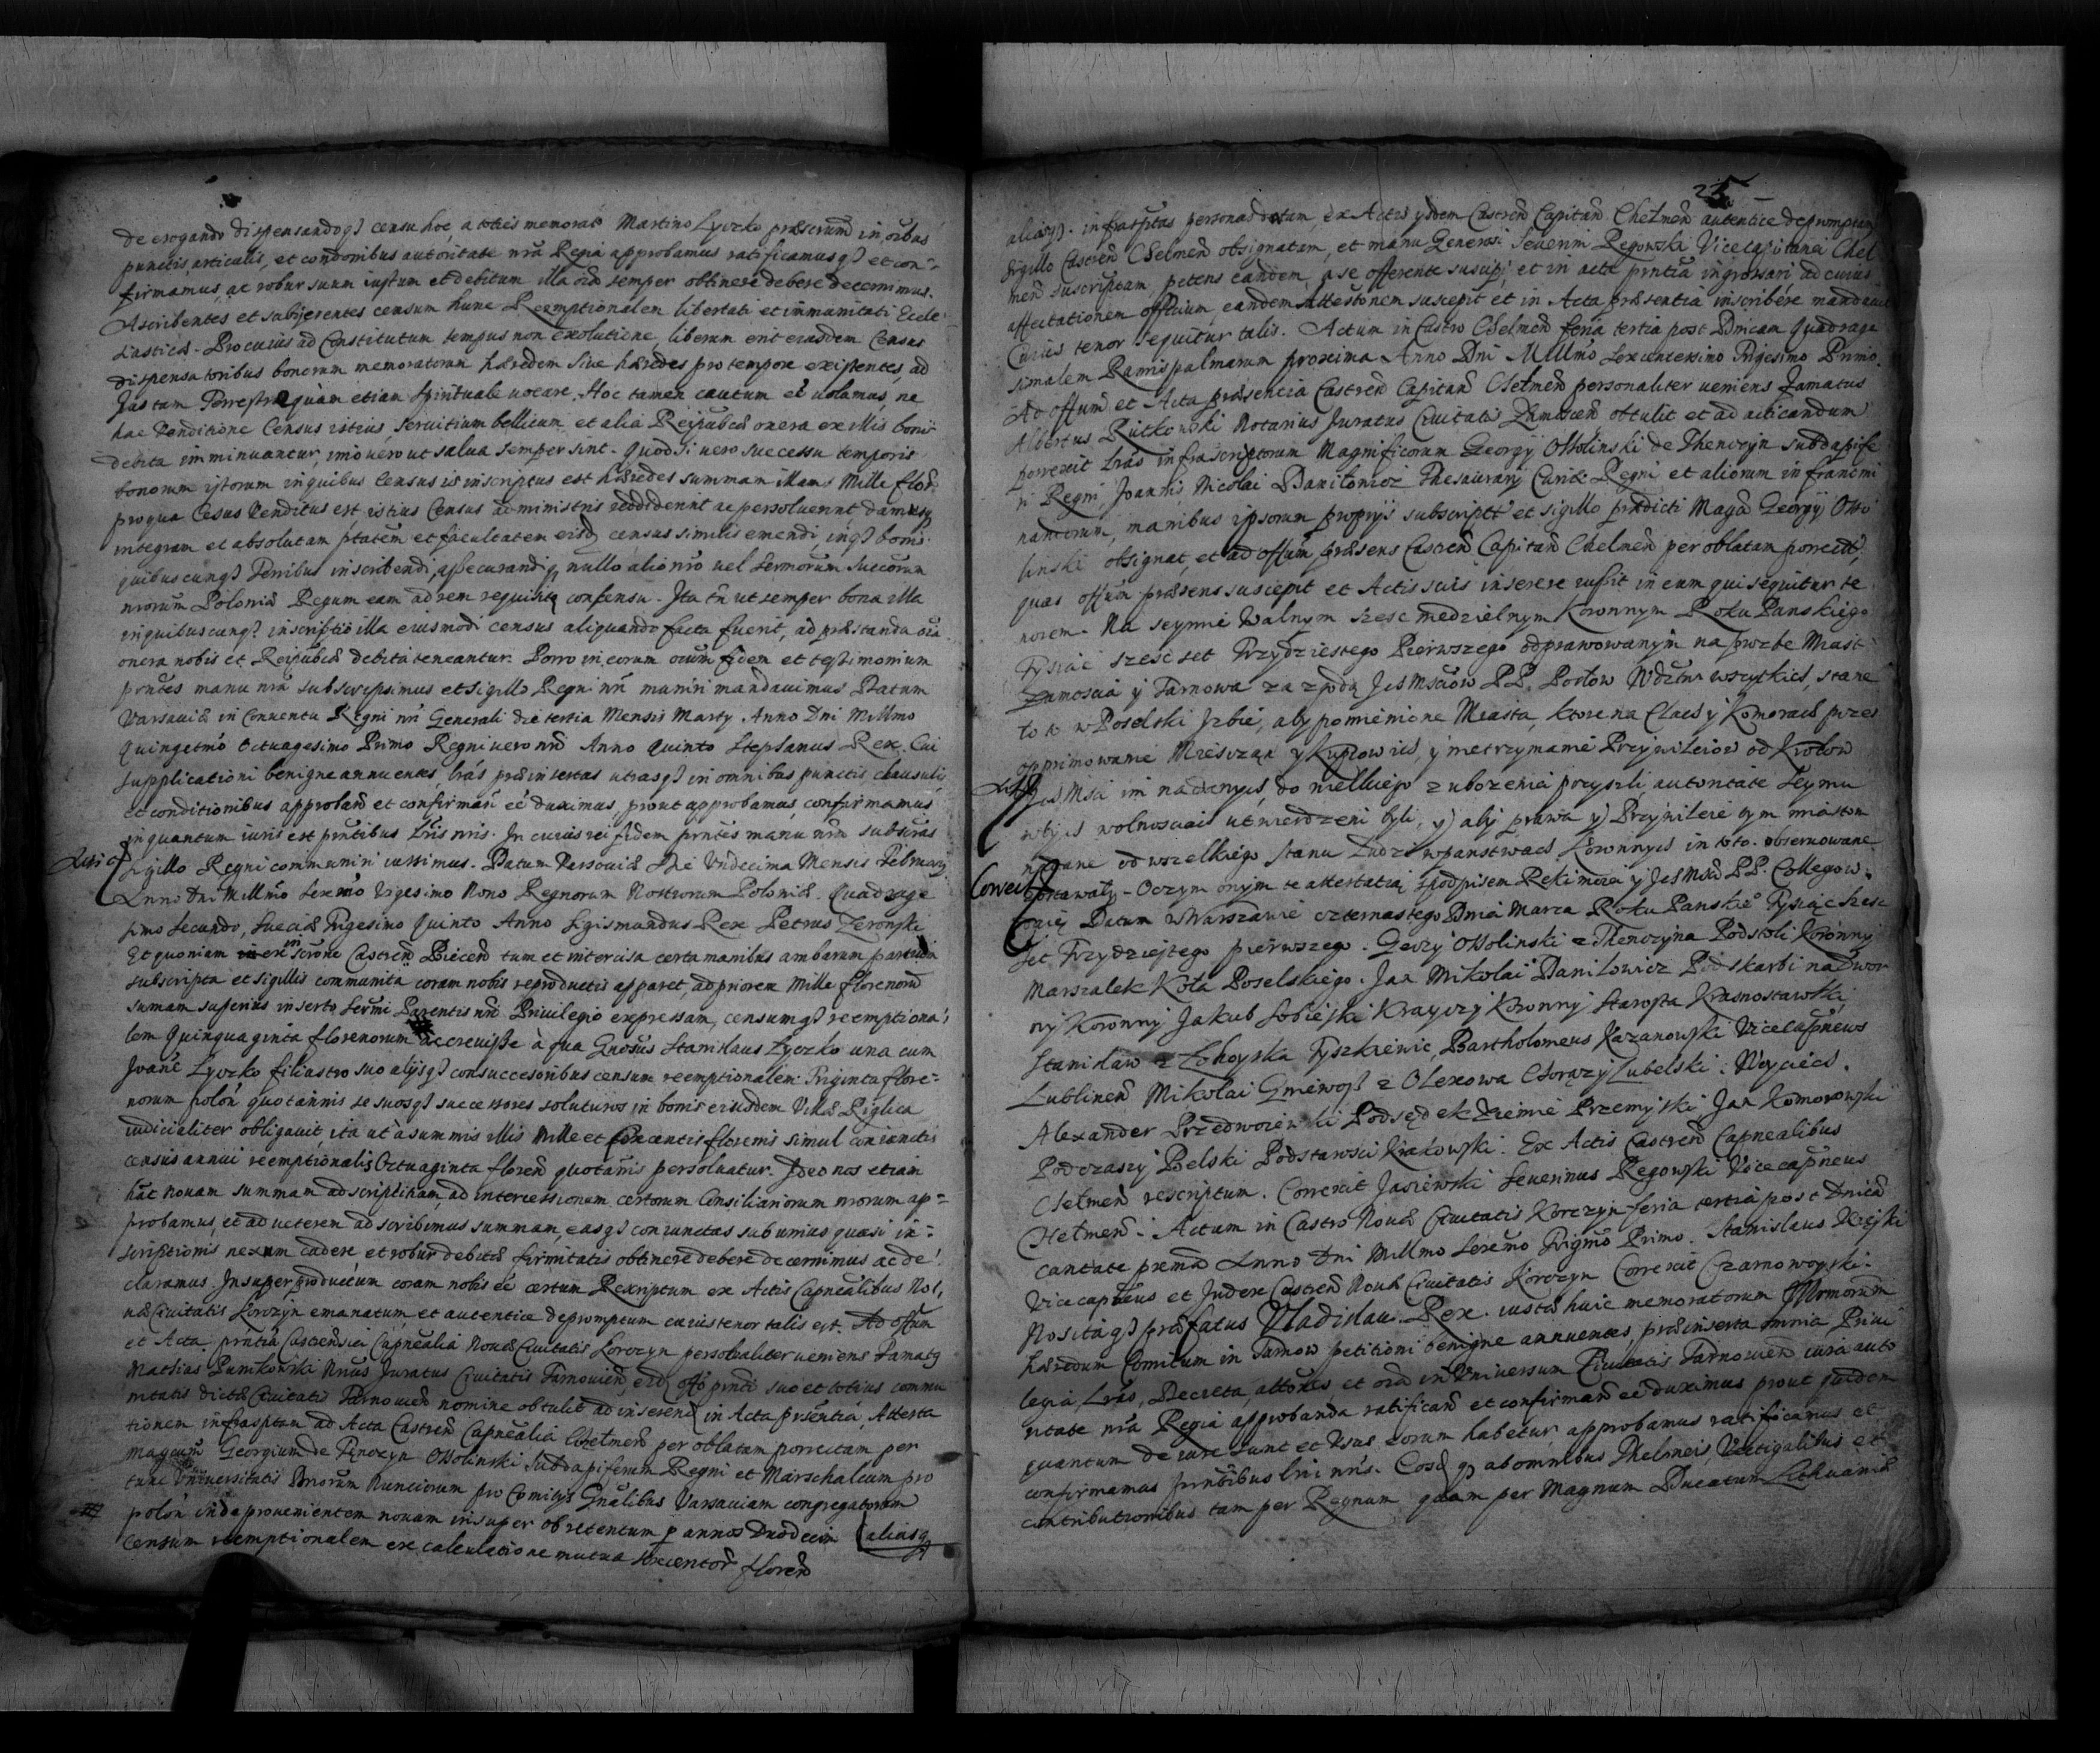 de erogando dispensandoq3 censu hoc a toties memorato Martino Lyczko praescriptum in oibus
punctis articulis, et condonibus autoritate nrã Regia approbamus ratificamusq3 et con-
firmamus, ac robur suum iustum et debitum illa oia semper obtinere debere decernimus.
Ascribentes et subijcientes censum hunc Reemptionalem libertati et immunitati Eccle
siasticæ. Pro cuius ad Constitutum tempus non exolutione, liberum erit eiusdem Census
dispensatoribus bonorum memoratorum hæredem siue hæredes pro tempore existentes, ad
Jus tam Terrestre quàm etiam Spirituale uocare. Hoc tamen cautum eẽ uolamus, ne
hac Venditione Census istius, seruitium bellicum et alia Reipublicæ onera ex illis bonis
debita imminuantur, imò uero ut salua semper sint. Quod si uero successu temporis
bonorum istorum in quibus Census is inscriptus est hæredes summam illam Mille floñ
pro qua Cesus Venditus est, istius Census administris reddiderint ac persoluerint damusq
integram et absolutam ptatem et facultatem eisdẽ census similis emendi inq3 bonis
quibuscunq3 Terribus inscribendi, assecurandiq nullo alio nrõ uel Sermorum Succorum
nrorum Poloniæ Regum eam ad rem requisitq consensu. Ita tñ ut semper bona illa
in quibuscunq3 inscriptio illa eiusmodi census aliquando facta fuerit, ad præstanda oia
onera nobis et Reipublicæ debita teneantur. Porro in eorum oium fidem et testimonium
prntes manu nrã subscripsimus et Sigillo Regni nri muniri mandauimus Datum
Varsauiæ in Conuentu Regni nri Generali die tertia Mensis Marty. Anno Dni Millmo
Quingetmo Octuagesimo Primo Regni uero nri Anno Quinto Stephanus Rex. Cui
supplicationi benigne annuentes lrás præinsertas utrasq3 in omnibus punctis clausulis
et conditionibus approband et confirmañ eẽ duximus, prout approbamus, confirmamus
in quantum iuris est prntibus Lris nris. In cuius rei fidem prntes manu nrã subscriptas
Sigillo Regni communiri iussimus. Datum Varsouiæ Die Vndecima Mensis Februarij
Anno Dni Millmo Sexcmo Vigesimo Nono Regnorum Nostrorum Poloniæ Quadrage
simo secundo, Sueciæ Trigesimo Quinto Anno Sigismundus Rex Petrus Zeronski
Et quoniam ex inscrone Castreñ Biecen tum et intercisa certa manibus ambarum partium
subscripta et sigillis communita coram nobis reproductis apparet, ad priorem Mille florenorũ
sumam superius inserto Sermi Parentis nri Priuilegio expressam, censumq3 reemptiona-
lem Quinquaginta florenorum accreuisse à qua Gnosus Stanislaus Lyczko una cum
Joañe Lyczko filiastro suo alijsq3 consuccesoribus censum reemptionalem Triginta flore-
norum poloñ quotannis se suosq3 successores soluturos in bonis eiusdem Villæ Piglica
iudicialiter obligauit ita ut à summis illis Mille et sexcentis florenis simul coniunctis
census annui reemptionalis Octuaginta floreñ quotañis persoluatur. Ideo nos etiam
hãc nouam summam adscriptitiam, ad intercessionem certorum Consiliariorum nrorum ap-
probamus, et ad ueterem adscribimus summam, easq3 coniunctas sub unius quasi in-
scriptionis nexum cadere et robur debitæ firmitatis obtinere debere decernimus ac de
claramus. Insuper productum coram nobis eẽ certum Rescriptum ex Actis Capnealibus No-
uæ Ciuitatis Korczyn emanatum et autentice depromptum cuius tenor talis est. Ad offum
et Acta prntia Castrensia Capnealia Nouæ Ciuitatis Korczyn personaliter ueniens Famatq
Mathias Punikowski Nrius Juratus Ciuitatis Tarnouieñ, eidẽ offo prnti suo et totius commu
nitatis dictæ Ciuitatis Tarnouieñ nomine obtulit ad inserenđ in Acta prsentia, Attesta
tionem infrasptam ad Acta Castreñ Capnealia Chelmeñ per oblatam porrectam per
Magcum Georgium de Tęnczyn Ossolinski Subdapiferum Regni et Marschalcum pro
tunc Vniuersitatis Dnorum Nunciorum pro Comitijs Gnalibus Varsauiam congregatorum
poloñ inde prouenientem nouam insuper ob retentum p annos Duodecim
censum reemptionalem ex calculatione mutua sexcentoř floreñ
aliasq
Lectio
23
aliasq3 infrasptas personas datam, ex Actis ijsdem Castreñ Capitañ Chełmeñ autentice depromptam
Sigillo Castreñ Chelmeñ obsignatam, et manu Generosi Seuerini Regowski Vicecapitanei Chel
meñ suscriptam, petens eandem, a se offerente suscipi, et in acta prntia ingrossari ad cuius
affectationem officium eandem Attestonem suscepit et in Acta præsentia inscribére mandauit
Cuius tenor sequitur talis. Actum in Castro Chelmeñ feria tertia post Dnicam Quadrage
simalem Ramispalmarum proxima Anno Dni Millmo Sexcentesimo Trigesimo Primo.
Ad offum et Acta præsencia Castreñ Capitañ Chełmeñ personaliter ueniens Famatus
Albertus Rutkowski Notarius Juratus Ciuitatis Zamosceñ obtulit et ad acticandum
porrexit Lrás infrascriptorum Magnificorum Georgij Ossolinski de Thenczyn Subdapife
ri Regni, Joannis Nicolai Daniłowicz Thesaurarij Curiæ Regni et aliorum in fra nomi
nandorum, manibus ipsorum proprijs subscriptas et sigillo prædicti Magci Georgij Osso
linski obsignat, et ad offum præsens Castreñ Capitañ Chelmeñ per oblatam porrectas,
quas offum præsens suscepit et Actis suis inserere iussit in eum qui sequitur te
norem. Na seymie Walnym szesc niedzielnym Koronnym Roku Panskiego
Tysiąc szesc set Trzydziestego Pierwszego odprawowanym na prozbe Miast
Zamoscia y Tarnowa za zgodą Jch Msciow PP. Posłow Wdztw wszytkich, stane
ło to w Poselski Izbie, aby pomienione Miasta, ktore na Clach y Komorach przez
opprimowanie Miesczan y Kupcow ich, y nietrzymanie Przywileiow od Krolow
Jch Msci im nadanych, do niellkiego zubozenia przyszli, autoritate Seymu
w tych wolnosciach utwierdzeni byli, y aby prawa y Przywileie tym miastom
nadane od wszelkiego stanu Ludzi w panstwach Koronnych in toto obserwowane
zostawały. O czym onym te attestatią z podpisem Ręki moiey y Jch Msci PP. Collegow
daię Datum w Warszawie czternastego Dnia Marca Roku Panskieo Tysiąc szesc
set Trzydziestego pierwszego. Gerzy Ossolinski z Thenczyna Podstoli Koronny
Marszalek Koła Poselskiego. Jan Mikołai Daniłowicz Podskarbi nadwor
ny Koronny Jakub Sobieski Krayczy Koronny Starosta Krasnostawski,
Stanisław z Łohoyska Tyszkiewic, Bartholomeus Kazanowski Vicecapneus
Lublineñ Mikołai Gniewosz z Olexowa Chorązy Lubelski. Woyciech.
Alexander Przedwoiewski Podsędek Ziemie Przemyski, Jan Komorowski
Podczaszy Belski Podstarosci Krakowski. Ex Actis Castreñ Capnealibus
Chełmeñ rescriptum. Correxit Jasiewski Seuerinus Regowski Vicecapneus
Chełmeñ. Actum in Castro Nouæ Ciuitatis Korczyn feria tertia post Dnicã
Cantate proxima Anno Dni Millmo Sexcmo Trigmo Primo. Stanislaus
Vicecapneus et Judex Castreñ Nouæ Ciuitatis Korczyn Correxit Czarnowoyski.
Nos itaq3 præfatus Vladislaus Rex. iustæ huic memoratorum Jllmorum
hæredum Comitum in Tarnow petitioni benigne annuentes, præinserta omnia Priui
legia, Lrás, Decreta, attones, et oia in Vniuersum Ciuitatis Tarnouieñ iura auto
ritate nrã Regia approbanda ratificanđ et confirmanđ eẽ duximus prout quidem
quantum de iure sunt et Vsus eorum habetur approbamus ratificamus et
confirmamus prntibus lris nris. Eosđ q3 ab omnibus Theloneis, Vectigalibus et
contributionibus tam per Regnum quam per Magnum Ducatum Lithuaniæ
Correcta